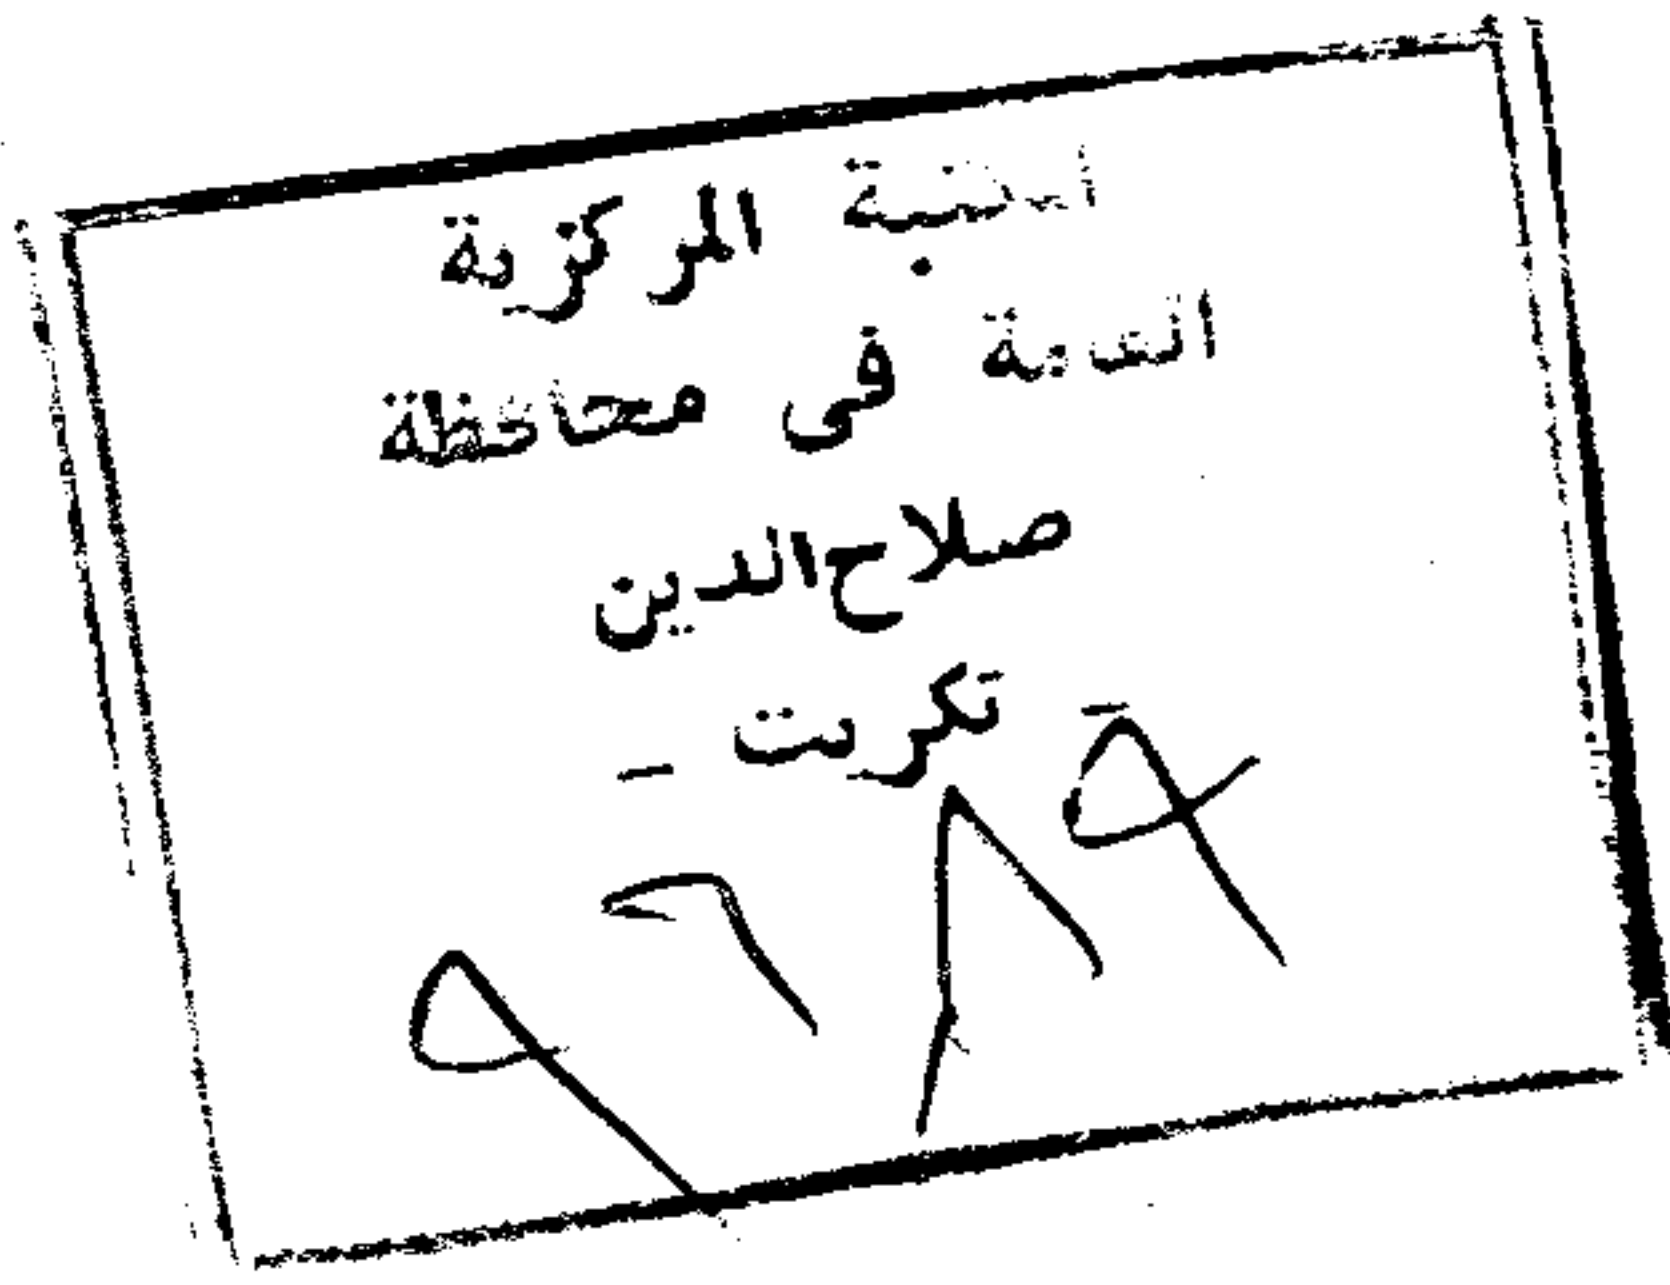 المكتبة المركزية
العامة في محافظة
صلاح الدين
- تكريت -
٩٦٨٩